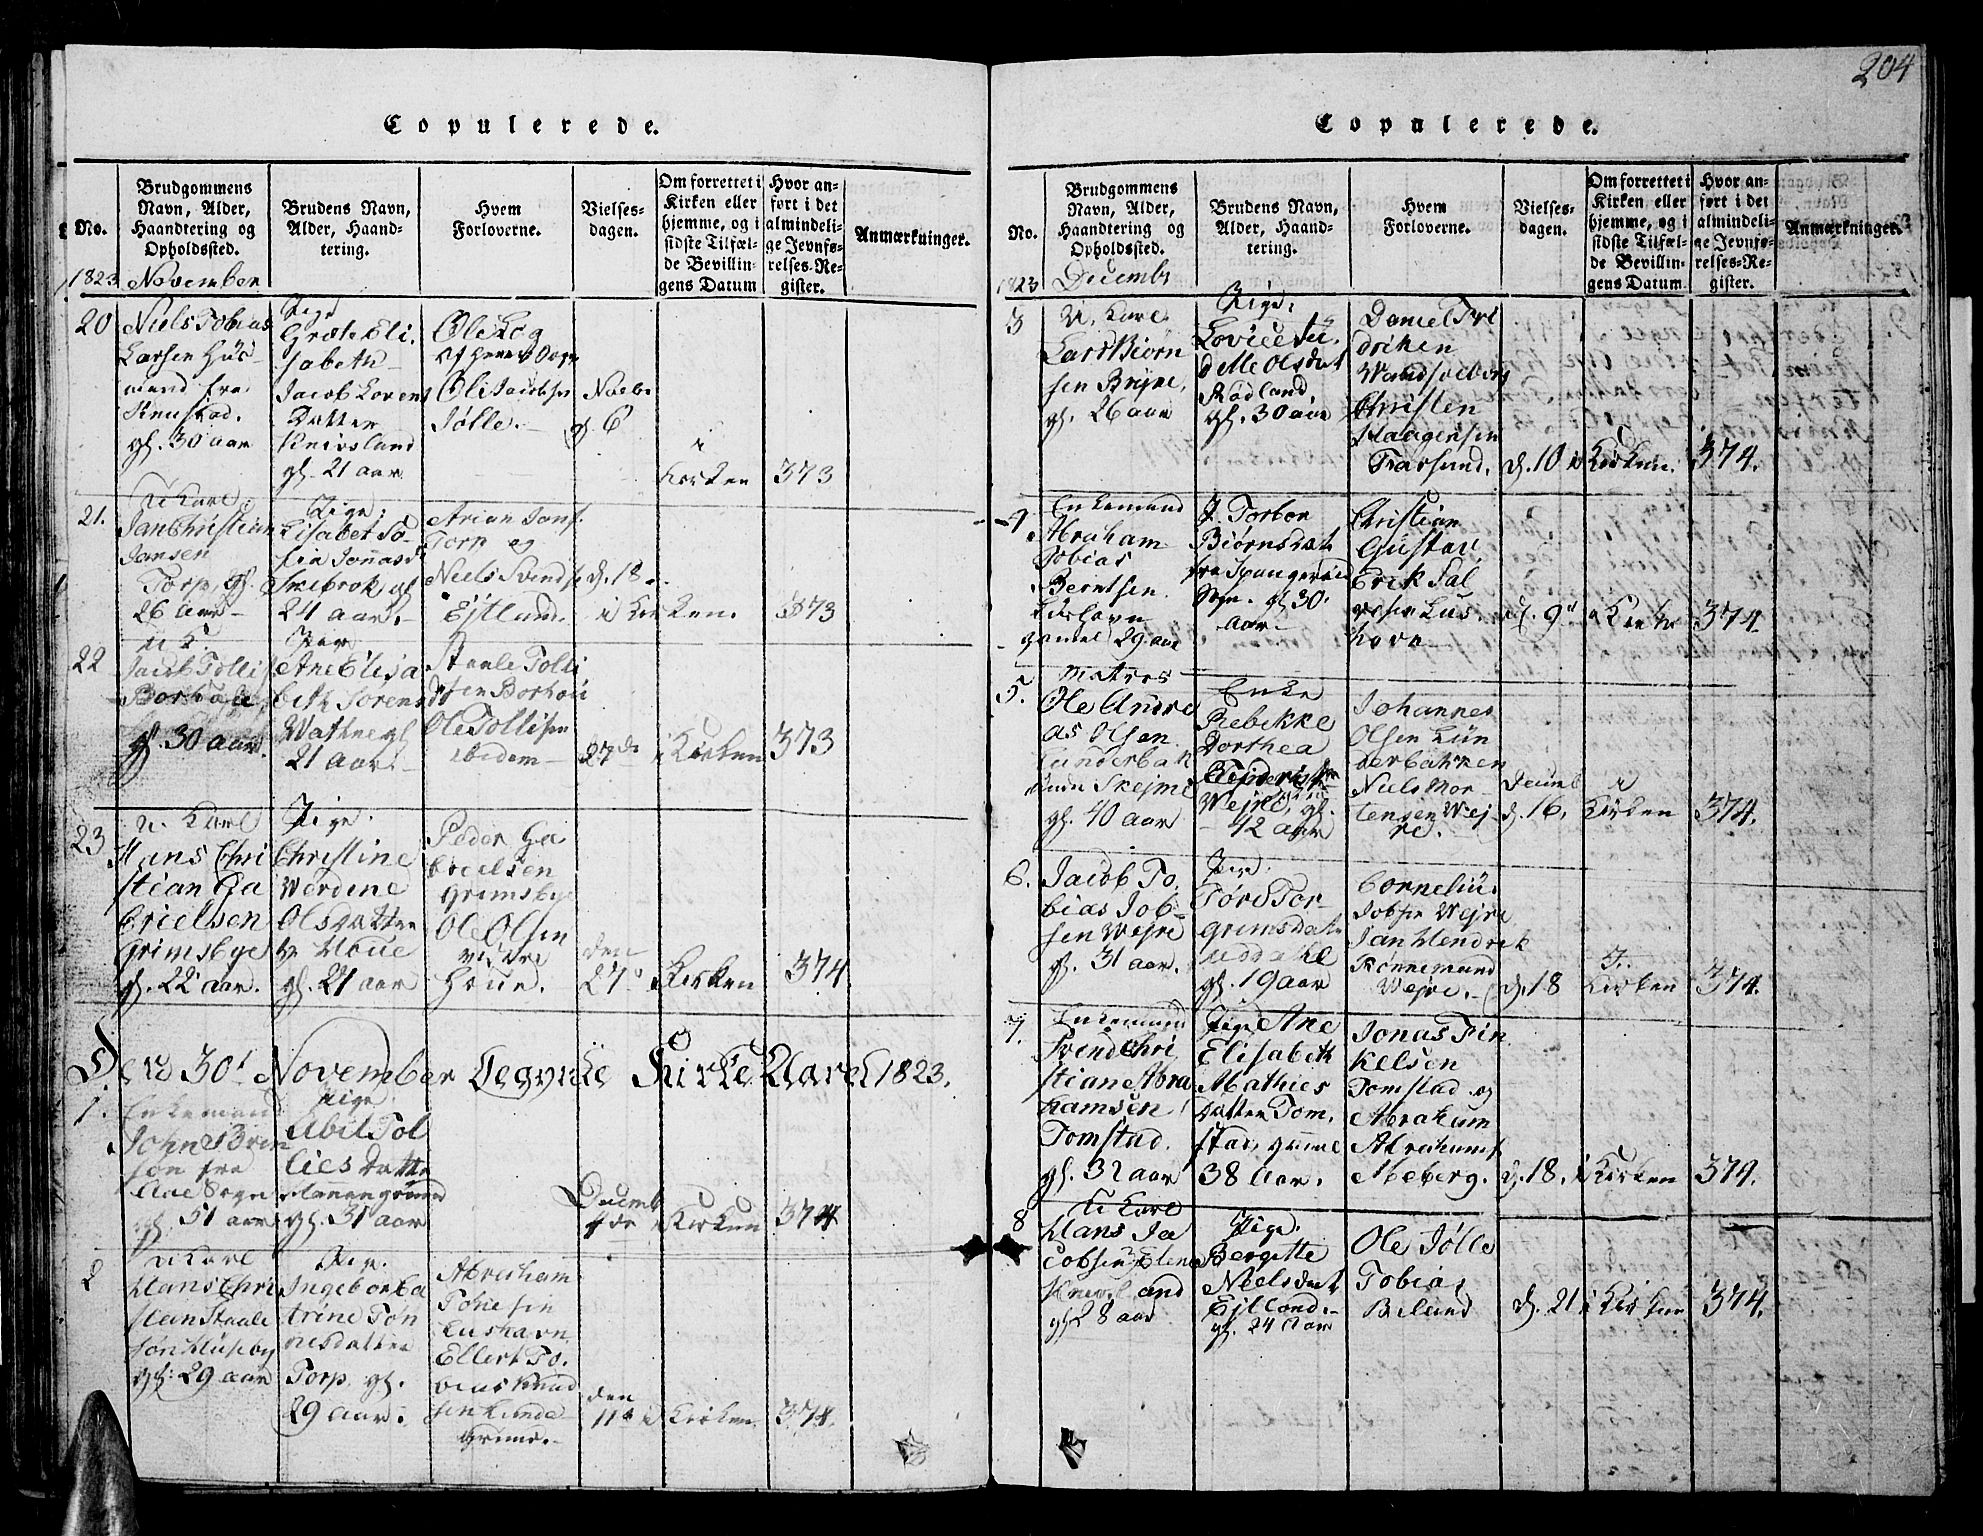 Copulerede.
No.
Brudgommens Navn, Alder, Haandtering og Opholdssted.
Brudens Navn, Alder, Haandtering.
Hvem Forloverne.
Vielsesdagen.
Om forrettet i Kirken eller hjemme, og i sidste Tilfælde Bevillingens Datum
Hvor anført i det almindelige Jevnførelses-Register.
Anmærkninger.
1823 November
20
Niels Tobias
Larsen Huus
mand fra
gl. 30 aar
Pige
Grethe Eli
sabeth
Jacob Lorens
Datter
Knivsland
gl. 21 aar
Ole
Ole Jacobsen
Jølle.
Novbr
d. 6
i
Kirken
373
21.
U. Karl
Jan Christian
Jansen
Torp, gl.
26 aar
Pige
Lisabet So-
fia Jonasd
Skebrok, gl
24 aar.
Arian Jans.
Torp og
Niels Svends.
Ejtland.
d. 18
i Kirken.
373
22
U. K.
Jacob Tollis
Borhoue
gl. 30 aar.
Pige
Ane Elisa
beth Sorensd
Wathne gl
21 aar.
Staale Tolli
sen Borhou
Ole Tollisen
ibidem
27de
i Kirken
373
23
U. Karl
Hans Chri
stian Ga
brielsen
Grimsbye
gl. 22 aar.
Pige.
Christine
Werdine
Olsdatter
Houe
gl. 21 aar
Peder Ga
brielsen
Grimsbye
Ole Olsen
Houe.
den
27
Kirken
374
Den 30t November begynte Kirke Aaret 1823.
1.
Enkemand
John
søn fra
Sogn
gl. 51 aar
Pige.
Abil Tol
lies Datter
gl. 31 aar
Decemb
4de
i Kirken
374
2
U Karl
Hans Chri
stian Staale
søn Huseby
gl. 29 aar
Pige.
Ingebor Ca
trine Tøn
nesdatter
Torp gl.
29 Aar.
Abraham
Tønesen
Lushavn
Ellert To.
bias Knud
sen Lunde
Grund.
den
11te i
Kirken
374.
204
Copulerede.
No.
Brudgommens Navn, Alder, Haandtering og Opholdssted.
Brudens Navn, Alder, Haandtering.
Hvem Forloverne.
Vielsesdagen.
Om forrettet i Kirken eller hjemme, og i sidste Tilfælde Bevillingens Datum
Hvor anført i det almindelige Jevnførelses-Register.
Anmærkninger.
1823 Decembr
3
U. Karl
Lars Biørn
sen Bryne,
gl. 26 aar
Pige.
Lovise
Olsdat
Rødland,
gl. 30 aar
Daniel Fri
driksen
Christen
Haagensen
Farsund.
d. 10 i
Kirken.
374.
4
Enkemand
Abraham
Tobias
Berntsen
Lushavn
gamel 29 aar
P. Torbor
Biørnsdat
fra
Sogn. gl 30
aar.
Christian
Gustav
Erik Sal
vesen Lus
havn
d. 9d
i Kirken
374.
5.
Matros
Ole Andre
as Olsen
Lunderbak
under Skejme
gl. 40 aar
Enke
Rebekke
Dorthea
Vejre, gl.
42 aar
Johannes
Olsen Lun
derbakken
Niels Mor-
tensen Wej
re.
Decemb
d. 16.
i
Kirken
374.
6.
Jacob To.
bias Job-
sen Wejre
gl. 31 aar.
Pige.
Tore Tor-
grimsdat
Uddahl
gl. 19 aar
Cornelius
Jobsen Wejre
Jan Hendrik
Rønnemand
Wejre.
d. 18
I.
Kirken
374.
7.
Enkemand
Svend Chri
stian Abra
hamsen
Tomstad.
gl. 32 aar
Pige Ane
Elisabeth
Mathies
Datter Tom,
stad, gammel
38 Aar.
Jonas Fin
kelsen
Tomstad og
Abraham
Abrahams.
Meberg.
d. 18.
i Kirken
374.
8
U Karl
Hans Ja
cobsen
Knivsland
gl 28 aar
Pige.
Bergitte
Neelsdat
Ejtland.
gl. 24 Aar
Ole Jølle
Tobias
Beland
d. 21
i Kirken
374.